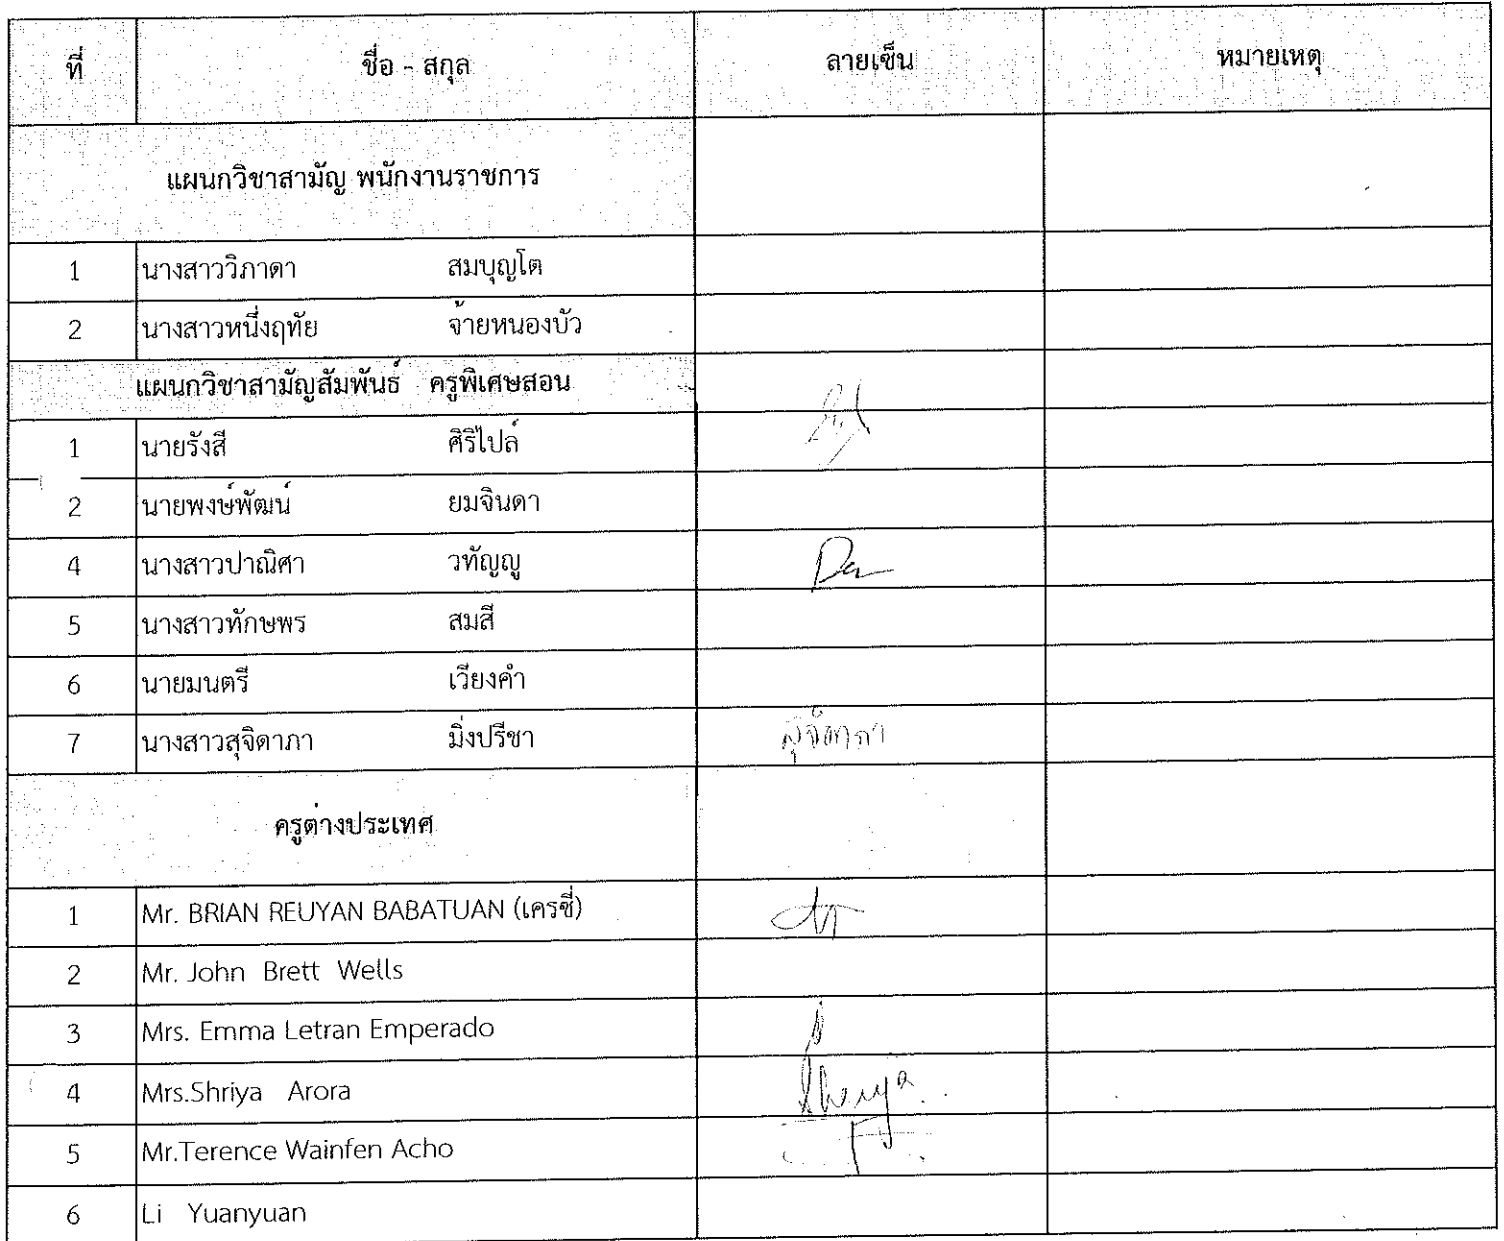 ที่ ชื่อ - สกุล ลายเซ็น หมายเหตุ
แผนกวิชาสามัญ พนักงานราชการ
1 นางสาววิภาดา สมบุญโต
2 นางสาวหนึ่งฤทัย จ้ายหนองบัว
แผนกวิชาสามัญสัมพันธ์ ครูพิเศษสอน
1 นายรังสี ศิริไปล์
2 นายพงษ์พัฒน์ ยมจินดา
4 นางสาวปาณิศา วทัญญู
5 นางสาวทักษพร สมสี
6 นายมนตรี เวียงคำ
7 นางสาวสุจิดาภา มิ่งปรีชา สุจิดาภา
ครูต่างประเทศ
1 Mr. BRIAN REUYAN BABATUAN (เครซี่)
2 Mr. John Brett Wells
3 Mrs. Emma Letran Emperado
4 Mrs.Shriya Arora Shriya
5 Mr.Terence Wainfen Acho
6 Li Yuanyuan